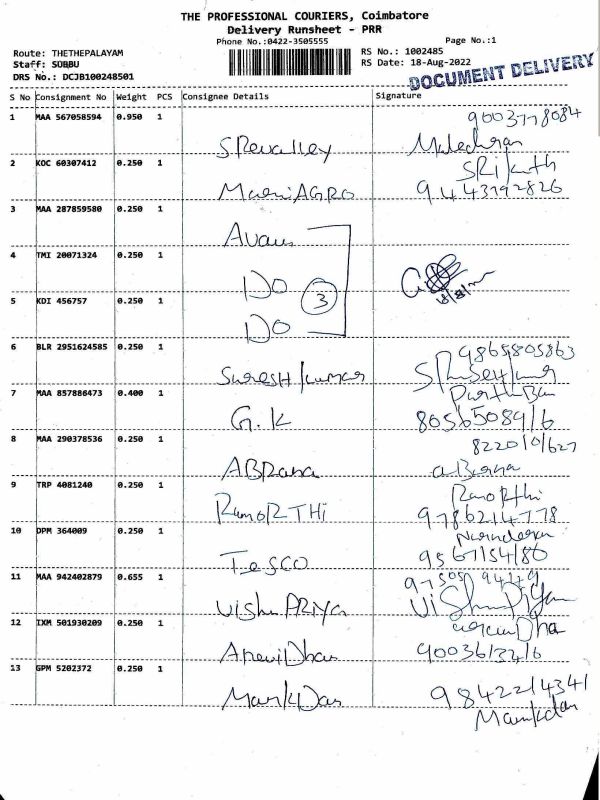 THE PROFESSIONAL COURIERS, Coimbatore
Delivery Runsheet - PRR
Phone No.:0422-3505555 Page No.:1
Route: THETHEPALAYAM RS No.: 1002485
Staff: SUBBU RS Date: 18-Aug-2022
DRS No.: DCJB100248501
DOCUMENT DELIVERY
S No Consignment No Weight PCS Consignee Details Signature
1 MAA 567058594 0.950 1
9003778084
2 KOC 60307412 0.250 1
AGRO 9443792826
3 MAA 287859580 0.250 1
4 TMI 20071324 0.250 1
DO 3
18/8/22
5 KDI 456757 0.250 1
DO
6 BLR 2951624585 0.250 1
9865805863
Suresh kumar
7 MAA 857886473 0.400 1
G.K 8056508916
8 MAA 290378536 0.250 1
8220101627
9 TRP 4081240 0.250 1
9786214778
10 DPM 364009 0.250 1
TESCO 9567154180
11 MAA 942402879 0.655 1
Vishu PRIYA
12 IXM 501930209 0.250 1
9003613216
13 GPM 5202372 0.250 1
9842214341